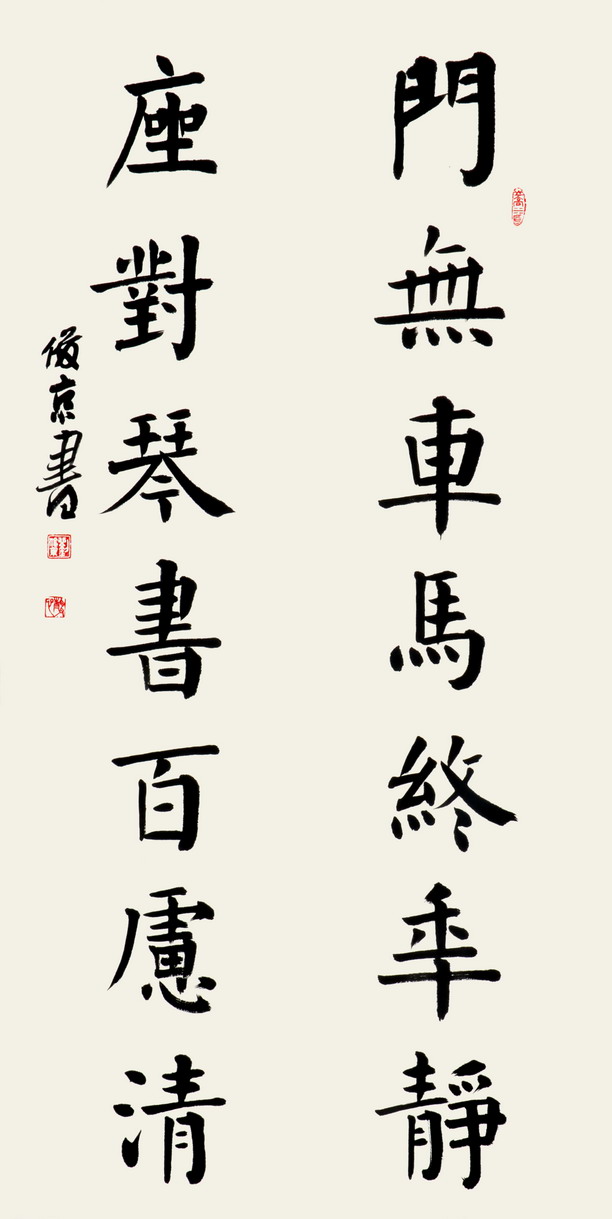 門無車馬終年靜
座對琴書百慮清
俊京書